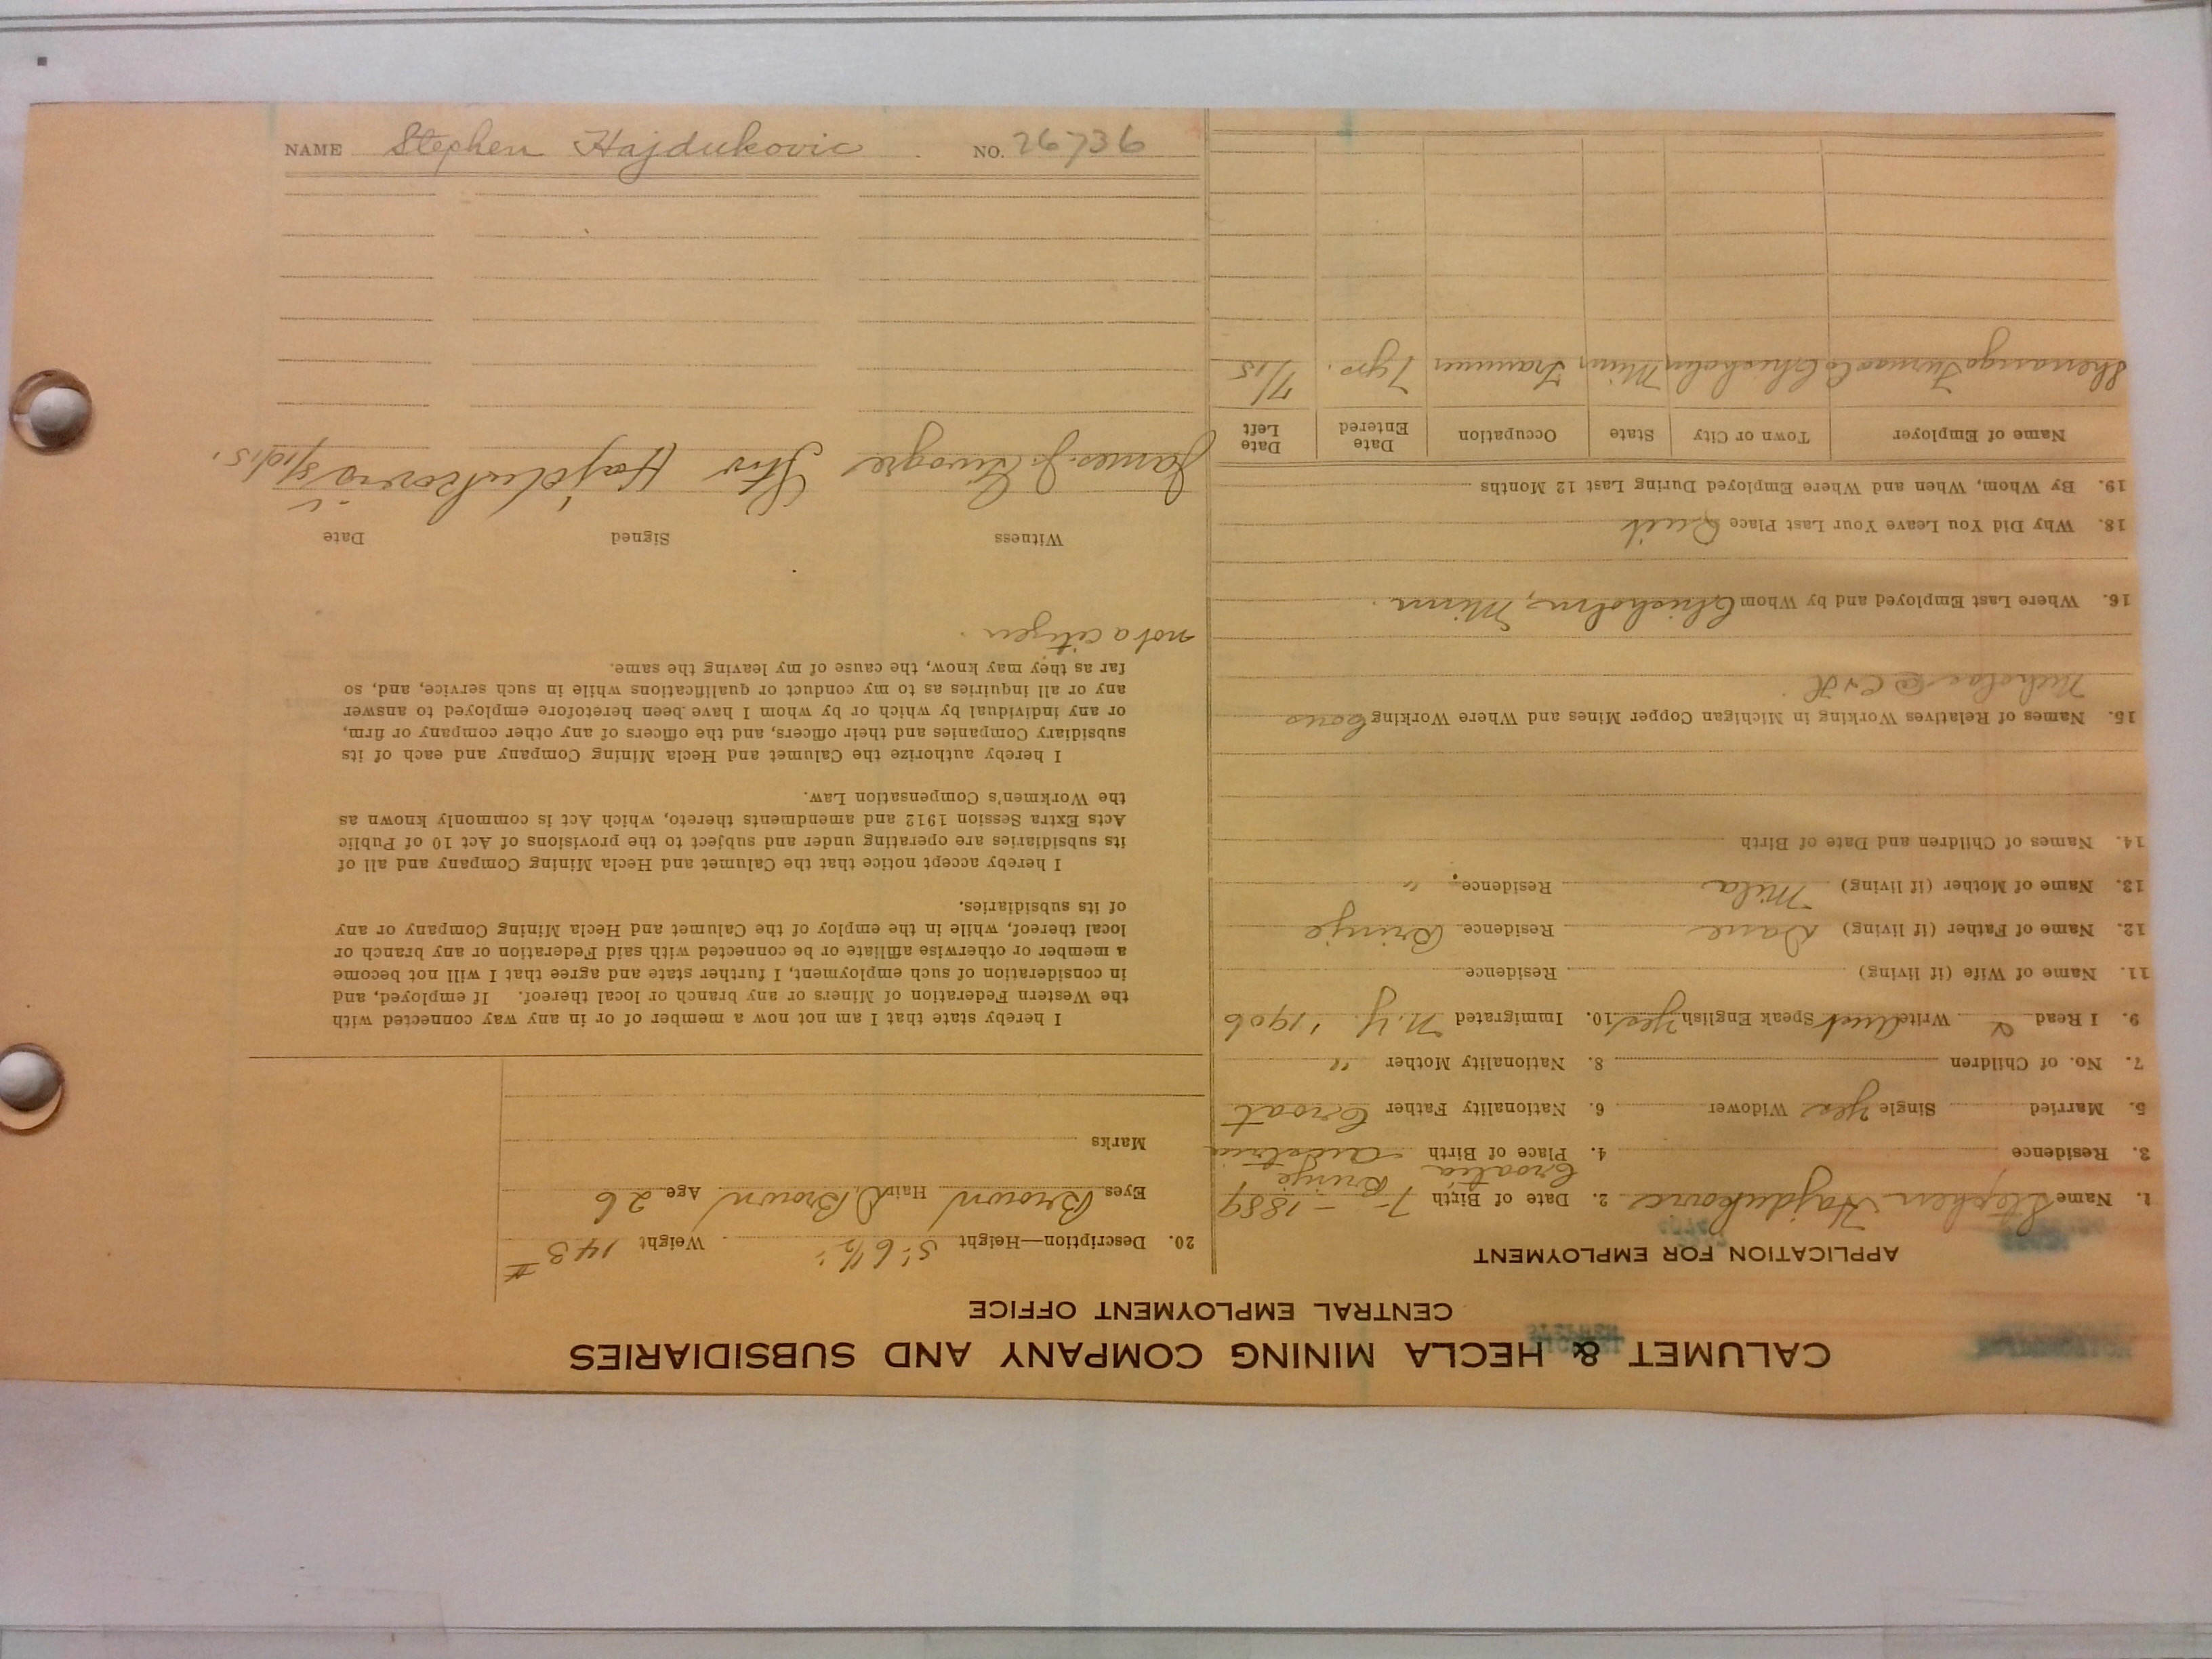 CALUMET & HECLA MINING COMPANY AND SUBSIDIARIES
CENTRAL EMPLOYMENT OFFICE
APPLICATION FOR EMPLOYMENT
1. Name Stephen Hajdukovic 2. Date of Birth 7 - - 1889
Croatia Brinje
3. Residence 4. Place of Birth Austria
5. Married Single Yes Widower 6. Nationality Father Croat
7. No. of Children 8. Nationality Mother "
9. I Read & Write Speak English Yes 10. Immigrated N.Y. 1906
11. Name of Wife (if living) Residence
12. Name of Father (if living) Dane Residence Brinje
13. Name of Mother (if living) Mila Residence "
14. Names of Children and Date of Birth
15. Names of Relatives Working in Michigan Copper Mines and Where Working Cous
Nicholas @ C & H
16. Where Last Employed and by Whom Chisholm, Minn.
18. Why Did You Leave Your Last Place Quit
19. By Whom, When and Where Employed During Last 12 Months
Name of Employer Town or City State Occupation Date Entered Date Left
Shenango Furnace Co Chisholm Minn Trammer 7 yrs. 7/15
20. Description—Height 5' 6½" Weight 143 #
Eyes Brown Hair D Brown Age 26
Marks
I hereby state that I am not now a member of or in any way connected with
the Western Federation of Miners or any branch or local thereof. If employed, and
in consideration of such employment, I further state and agree that I will not become
a member or otherwise affiliate or be connected with said Federation or any branch or
local thereof, while in the employ of the Calumet and Hecla Mining Company or any
of its subsidiaries.
I hereby accept notice that the Calumet and Hecla Mining Company and all of
its subsidiaries are operating under and subject to the provisions of Act 10 of Public
Acts Extra Session 1912 and amendments thereto, which Act is commonly known as
the Workmen's Compensation Law.
I hereby authorize the Calumet and Hecla Mining Company and each of its
subsidiary Companies and their officers, and the officers of any other company or firm,
or any individual by which or by whom I have been heretofore employed to answer
any or all inquiries as to my conduct or qualifications while in such service, and, so
far as they may know, the cause of my leaving the same.
not a citizen.
Witness Signed Date
James J. Hajdukovic 8/10/15.
NAME Stephen Hajdukovic NO. 26736